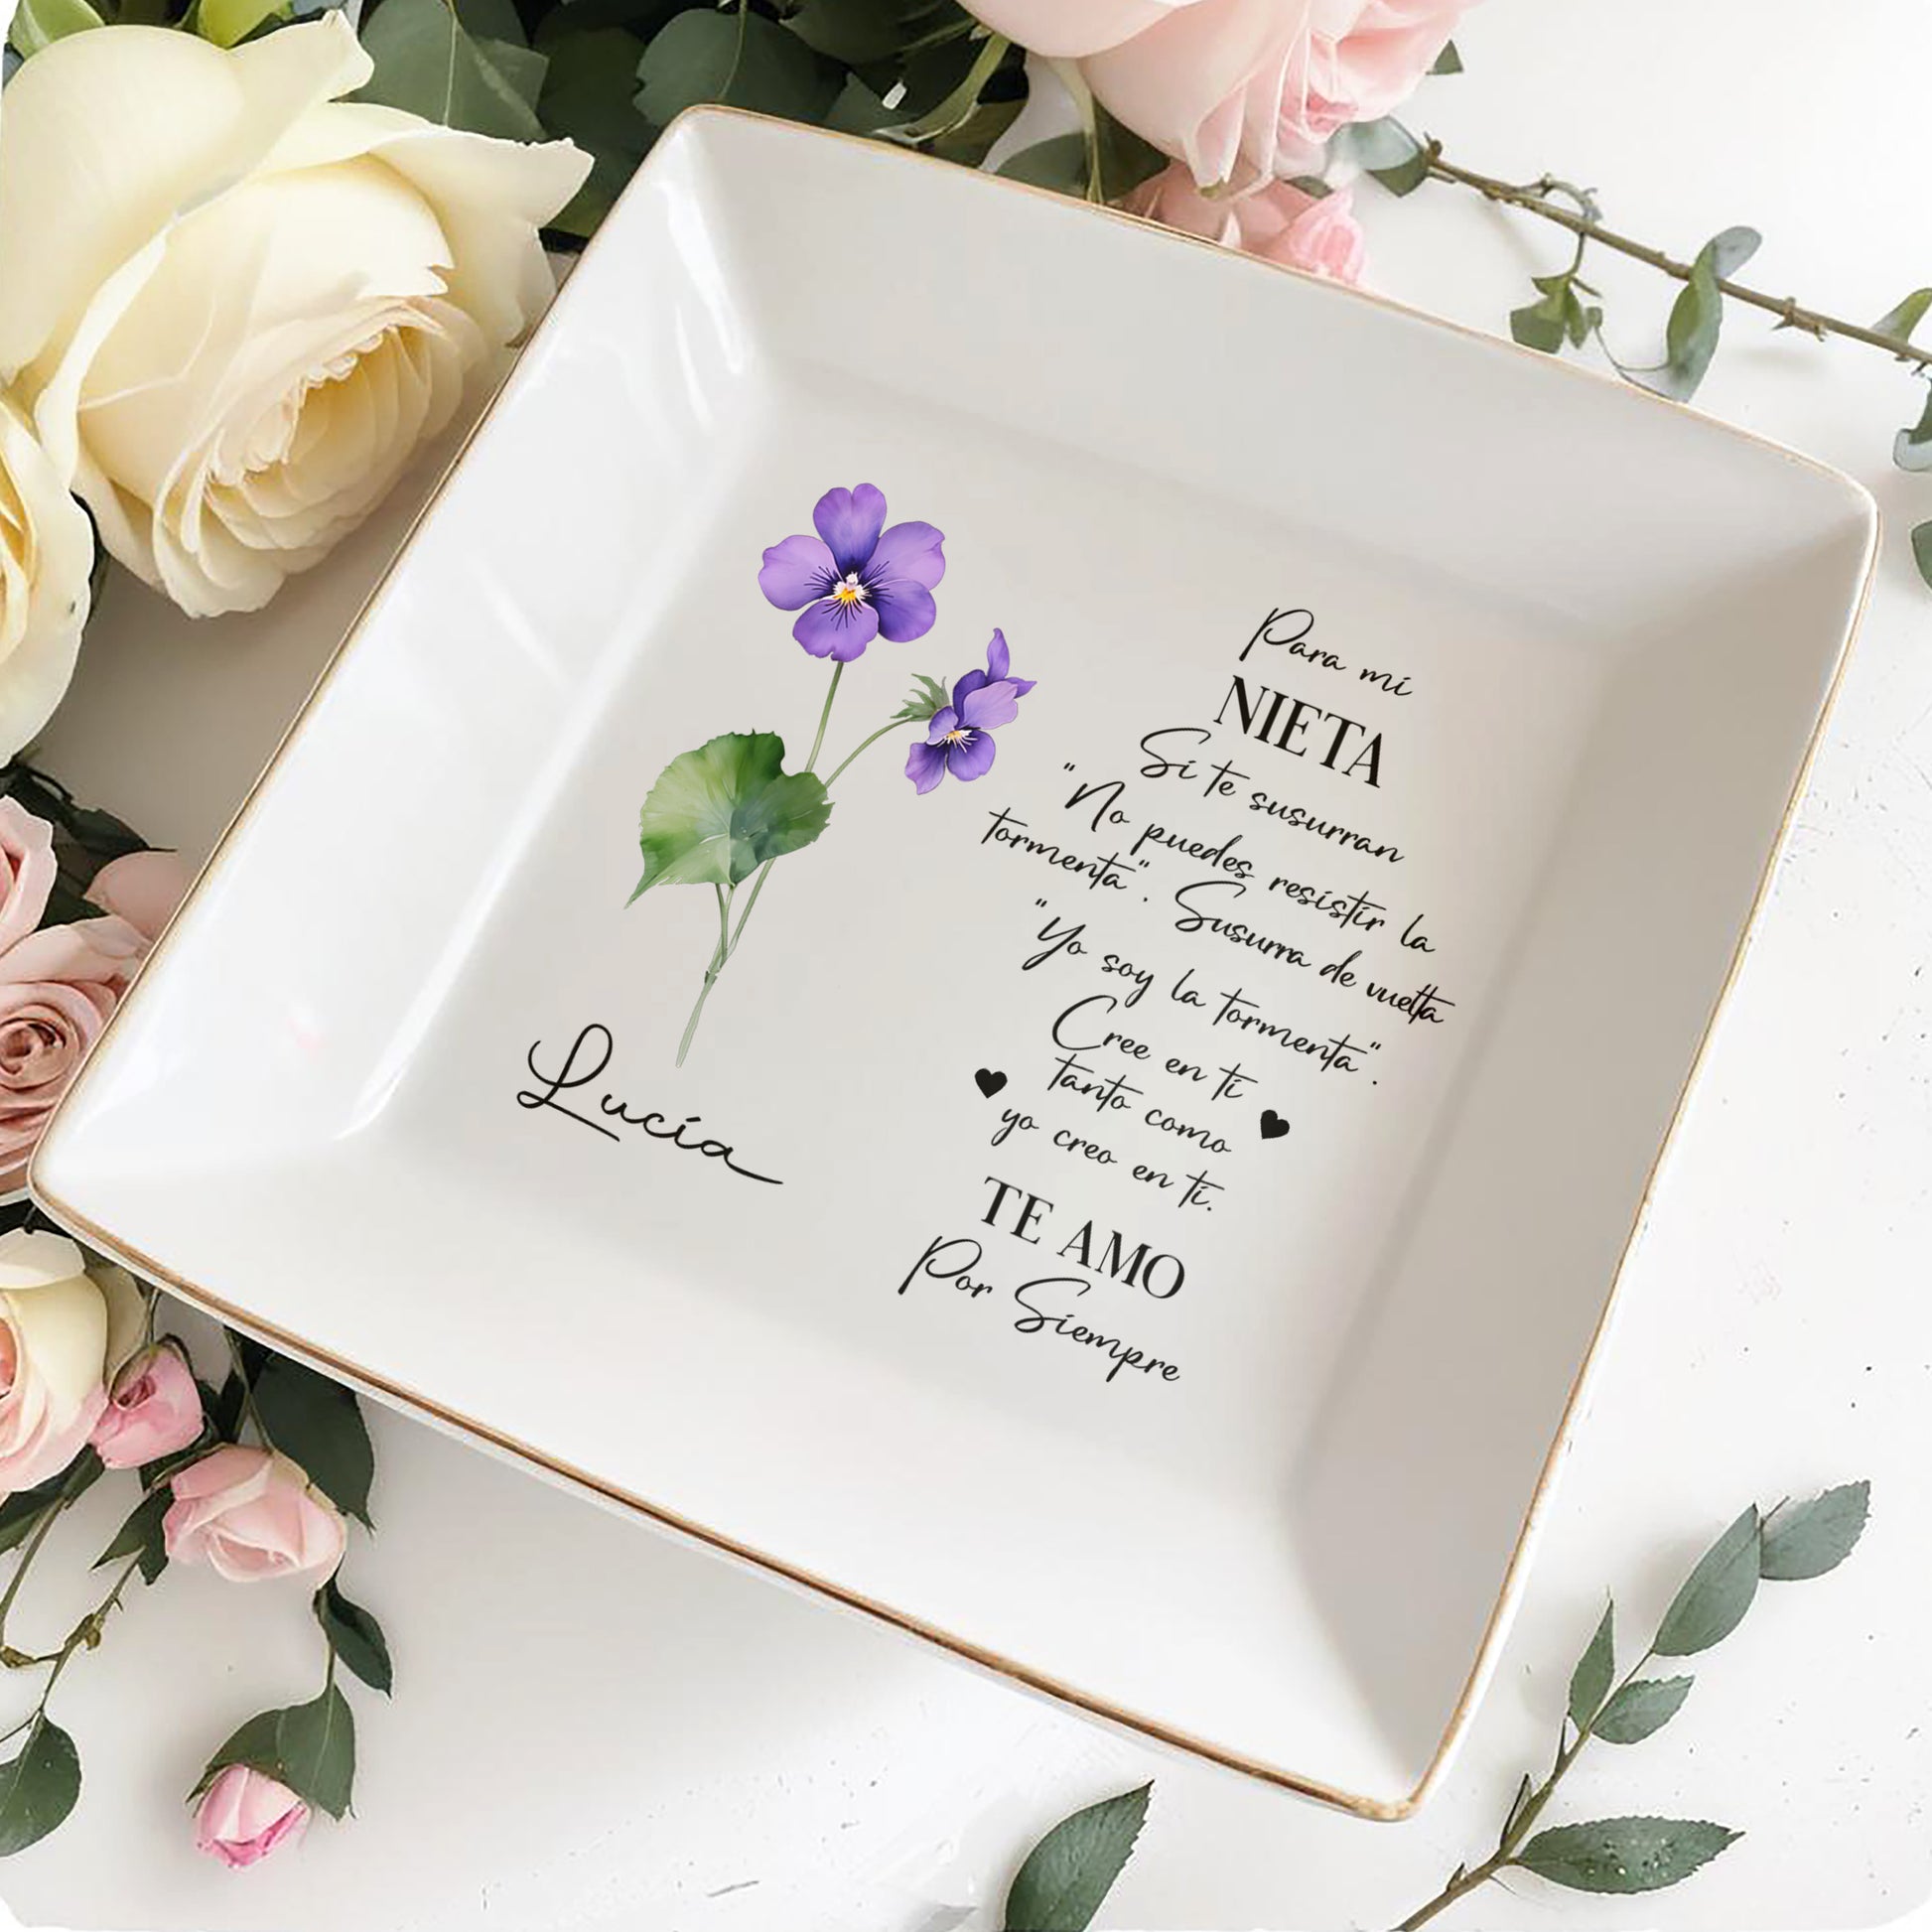 Para mi
NIETA
Si te susurran
"No puedes resistir la
tormenta". Susurra de vuelta
"Yo soy la tormenta".
Cree en ti
tanto como
yo creo en ti.
TE AMO
Por Siempre
Lucía